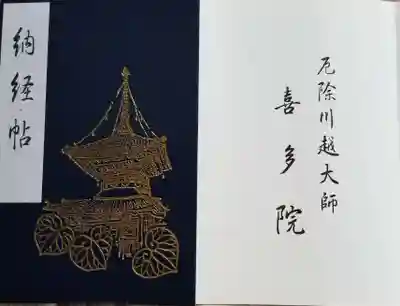 納経帖
厄除川越大師
喜多院